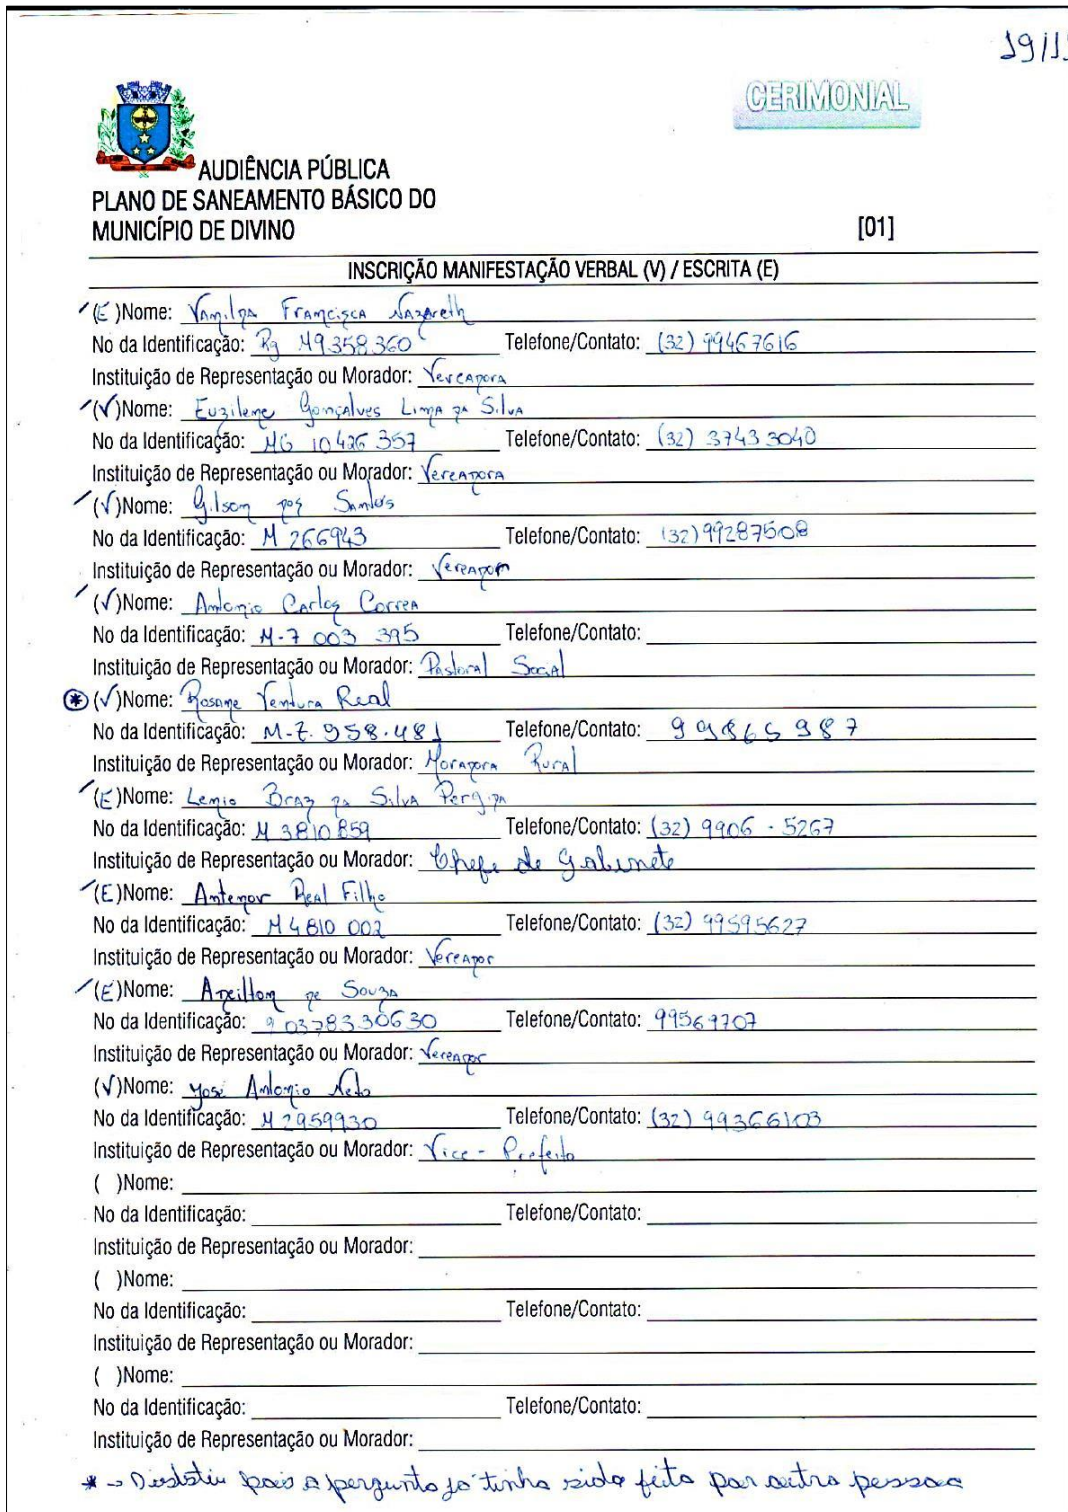 19/11
CERIMONIAL
AUDIÊNCIA PÚBLICA
PLANO DE SANEAMENTO BÁSICO DO
MUNICÍPIO DE DIVINO
[01]
INSCRIÇÃO MANIFESTAÇÃO VERBAL (V) / ESCRITA (E)
(E)Nome: Vanilda Francisca Nazareth
No da Identificação: Rg M9358360 Telefone/Contato: (32) 99467616
Instituição de Representação ou Morador: Vereadora
(V)Nome: Euzilene Gonçalves Lima da Silva
No da Identificação: MG 10426 357 Telefone/Contato: (32) 3743 3040
Instituição de Representação ou Morador: Vereadora
(V)Nome: Gilson dos Santos
No da Identificação: M 266943 Telefone/Contato: (32) 99287508
Instituição de Representação ou Morador: Vereador
(V)Nome: Antonio Carlos Correa
No da Identificação: M-7 003 395 Telefone/Contato:
Instituição de Representação ou Morador: Pastoral Social
* (V)Nome: Rosane Ventura Real
No da Identificação: M-7.958.481 Telefone/Contato: 99865987
Instituição de Representação ou Morador: Moradora Rural
(E)Nome: Lenio Braz da Silva
No da Identificação: M 3810859 Telefone/Contato: (32) 9906-5267
Instituição de Representação ou Morador: Chefe de Gabinete
(E)Nome: Antenor Real Filho
No da Identificação: M4810 002 Telefone/Contato: (32) 99595627
Instituição de Representação ou Morador: Vereador
(E)Nome: Adeilton de Souza
No da Identificação: 9 0378330630 Telefone/Contato: 99569707
Instituição de Representação ou Morador: Vereador
(V)Nome: José Antonio Neto
No da Identificação: M 2959930 Telefone/Contato: (32) 99366103
Instituição de Representação ou Morador: Vice-Prefeito
( )Nome:
No da Identificação: Telefone/Contato:
Instituição de Representação ou Morador:
( )Nome:
No da Identificação: Telefone/Contato:
Instituição de Representação ou Morador:
( )Nome:
No da Identificação: Telefone/Contato:
Instituição de Representação ou Morador:
* → Desistiu pois a pergunta já tinha sido feita por outra pessoa